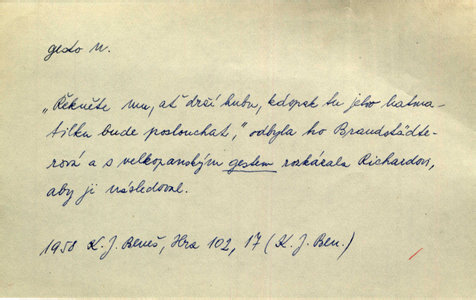 gesto n.
„Řekněte mu, ať drží hubu, kdopak tu jeho hatma-
tilku bude poslouchat,“ odbyla ho Brandstädte-
rová a s velkopanským gestem rozkázala Richardovi,
aby ji následoval.
1958 K. J. Beneš, Hra 102, 17 (K. J. Ben.)